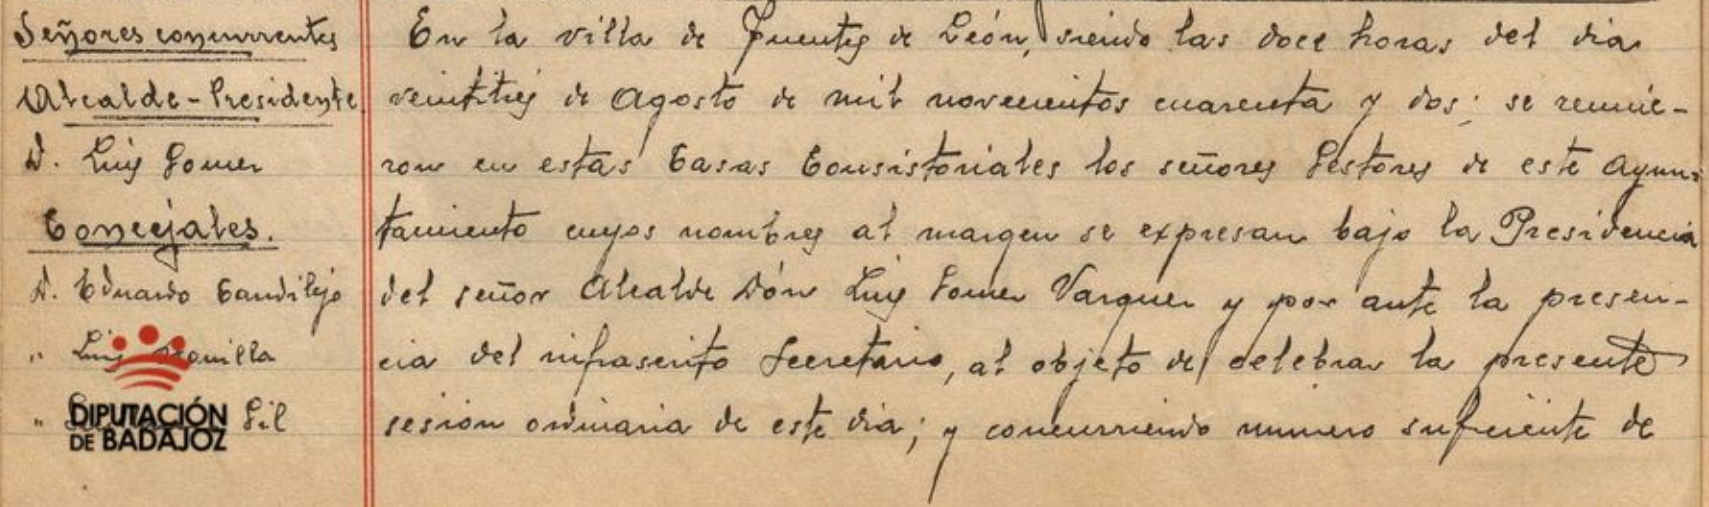 Señores concurrentes
Alcalde-Presidente
D. Luis Gomez
Concejales.
D. Eduardo Candilejo
" Luis Bonilla
" Gil
DIPUTACIÓN
DE BADAJOZ
En la villa de Fuentes de León, siendo las doce horas del dia
veintitres de Agosto de mil novecientos cuarenta y dos; se reunie-
ron en estas Casas Consistoriales los señores Gestores de este Ayun-
tamiento cuyos nombres al margen se expresan bajo la Presidencia
del señor Alcalde Dón Luis Gomez Vazquez y por ante la presen-
cia del infrascrito Secretario, al objeto de celebrar la presente
sesión ordinaria de este dia; y concurriendo numero suficiente de